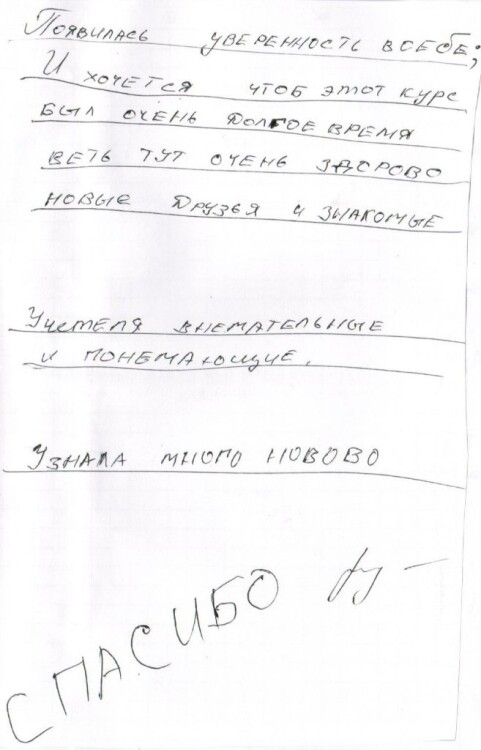 Появилась уверенность всебе;
И хочется чтоб этот курс
был очень долгое время
веть тут очень здорово
новые друзья и знакомые
Учителя внемательные
и понемающие.
Узнала много нового
СПАСИБО